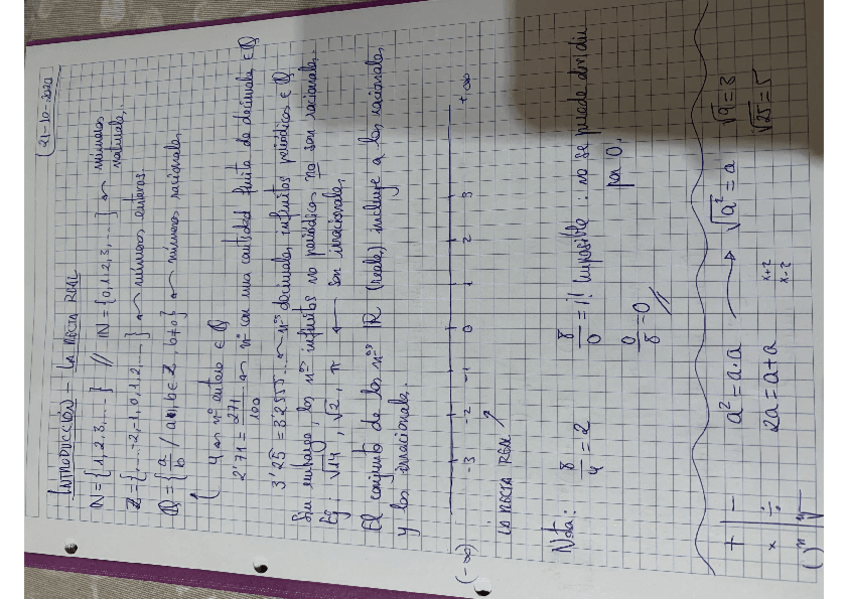 21-10-2020
INTRODUCCIÓN - LA RECTA REAL
N = {1, 2, 3, ...} // N = {0, 1, 2, 3, ...} ← números naturales,
Z = {, ... -2, -1, 0, 1, 2, ...} ← números enteros.
Q = {a/b / a, b ∈ Z, b≠0} ← números racionales
4 → nº entero ∈ Q
2'71 = 271/100 → nº con una cantidad finita de decimales ∈ Q
3'25 = 3'2555... → nºs decimales infinitos periódicos ∈ Q
Sin embargo, los nºs infinitos no periódicos no son racionales.
Ej: √14, √2, π ← son irracionales
El conjunto de los nºs R (reales) incluye a los racionales
y los irracionales.
(-∞) -3 -2 -1 0 1 2 3 +∞
LA RECTA REAL
Nota: 8/4 = 2 8/0 = ¡! Imposible: no se puede dividir
por 0.
0/8 = 0 //
+ | - a² = a·a → √a² = a √9 = 3
x | ÷ 2a = a+a x+2 x-2 √25 = 5
( )ⁿ | ⁿ√